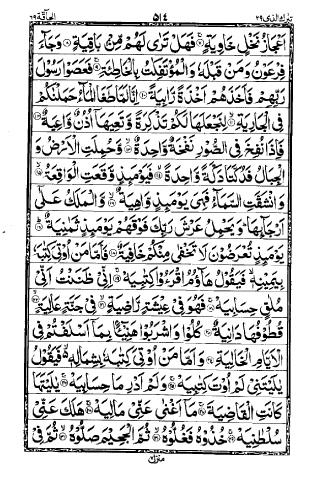 تبٰرك الذی ٢٩ ٥١٤ الحآقة ٦٩
اَعْجَازُ نَخْلٍ خَاوِیَةٍ ۚ فَهَلْ تَرٰى لَهُمْ مِّنْۢ بَاقِیَةٍ وَ جَآءَ
فِرْعَوْنُ وَ مَنْ قَبْلَهٗ وَ الْمُؤْتَفِكٰتُ بِالْخَاطِئَةِ ۚ فَعَصَوْا رَسُوْلَ
رَبِّهِمْ فَاَخَذَهُمْ اَخْذَةً رَّابِیَةً اِنَّا لَمَّا طَغَا الْمَآءُ حَمَلْنٰكُمْ
فِی الْجَارِیَةِ ۙ لِنَجْعَلَهَا لَكُمْ تَذْكِرَةً وَّ تَعِیَهَاۤ اُذُنٌ وَّاعِیَةٌ
فَاِذَا نُفِخَ فِی الصُّوْرِ نَفْخَةٌ وَّاحِدَةٌ ۙ وَّ حُمِلَتِ الْاَرْضُ وَ
الْجِبَالُ فَدُكَّتَا دَكَّةً وَّاحِدَةً ۙ فَیَوْمَئِذٍ وَّقَعَتِ الْوَاقِعَةُ ۙ
وَ انْشَقَّتِ السَّمَآءُ فَهِیَ یَوْمَئِذٍ وَّاهِیَةٌ ۙ وَّ الْمَلَكُ عَلٰۤى
اَرْجَآئِهَا ؕ وَ یَحْمِلُ عَرْشَ رَبِّكَ فَوْقَهُمْ یَوْمَئِذٍ ثَمٰنِیَةٌ ؕ
یَوْمَئِذٍ تُعْرَضُوْنَ لَا تَخْفٰى مِنْكُمْ خَافِیَةٌ فَاَمَّا مَنْ اُوْتِیَ كِتٰبَهٗ
بِیَمِیْنِهٖ ۙ فَیَقُوْلُ هَآؤُمُ اقْرَءُوْا كِتٰبِیَهْ ۚ اِنِّیْ ظَنَنْتُ اَنِّیْ
مُلٰقٍ حِسَابِیَهْ ۚ فَهُوَ فِیْ عِیْشَةٍ رَّاضِیَةٍ ۙ فِیْ جَنَّةٍ عَالِیَةٍ ۙ
قُطُوْفُهَا دَانِیَةٌ كُلُوْا وَ اشْرَبُوْا هَنِیْٓـًٔۢا بِمَاۤ اَسْلَفْتُمْ فِی
الْاَیَّامِ الْخَالِیَةِ وَ اَمَّا مَنْ اُوْتِیَ كِتٰبَهٗ بِشِمَالِهٖ ۙ فَیَقُوْلُ
یٰلَیْتَنِیْ لَمْ اُوْتَ كِتٰبِیَهْ ۚ وَ لَمْ اَدْرِ مَا حِسَابِیَهْ ۚ یٰلَیْتَهَا
كَانَتِ الْقَاضِیَةَ ۚ مَاۤ اَغْنٰى عَنِّیْ مَالِیَهْ ۚ هَلَكَ عَنِّیْ
سُلْطٰنِیَهْ ۚ خُذُوْهُ فَغُلُّوْهُ ۙ ثُمَّ الْجَحِیْمَ صَلُّوْهُ ۙ ثُمَّ فِیْ
منزل ٧